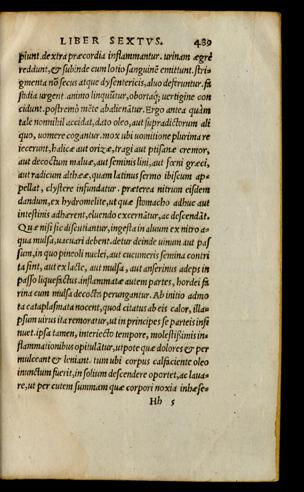 LIBER SEXTVS. 489
piunt. dextra præcordia inflammantur. urinam ægrè
reddunt, & subinde cum lotio sanguinẽ emittunt. stri-
gmenta nõ secus atque dysentericis, aluo deferuntur. fa
stidia urgent. animo linquũtur, obortaq́; uertigine con
cidunt. postremò mẽte abalienãtur. Ergo antea quàm
tale nonnihil accidat, dato oleo, aut supradictorum ali
quo, uomere cogantur. mox ubi uomitione plurima re
iecerunt, halicæ aut orizæ, tragi aut ptisanæ cremor,
aut decoctum maluæ, aut seminis lini, aut fœni græci,
aut radicum altheæ, quam latinus sermo ibiscum ap-
pellat, clystere infundatur. præterea nitrum eisdem
dandum, ex hydromelite, ut quæ stomacho adhuc aut
intestinis adhærent, eluendo excernãtur, ac descendãt.
Quæ nisi sic discutiantur, ingesta in aluum ex nitro a-
qua mulsa, uacuari debent. detur deinde uinum aut pas
sum, in quo pineoli nuclei, aut cucumeris semina contri
ta sint, aut ex lacte, aut mulsa, aut anserinus adeps in
passo liquefactus. inflammatæ autem partes, hordei fa
rina cum mulsa decocta perungantur. Ab initio admo
ta cataplasmata nocent, quod citatus ab eis calor, illa-
psum uirus ita remoratur, ut in principes se parteis insi
nuet. ipsa tamen, interiecto tempore, molestissimis in-
flammationibus opitulãtur, utpote quæ dolores & per
mulceant & leniant. tum ubi corpus calfaciente oleo
inunctum fuerit, in solium descendere oportet, ac laua-
re, ut per cutem summam quæ corpori noxia inhæse-
Hh 5